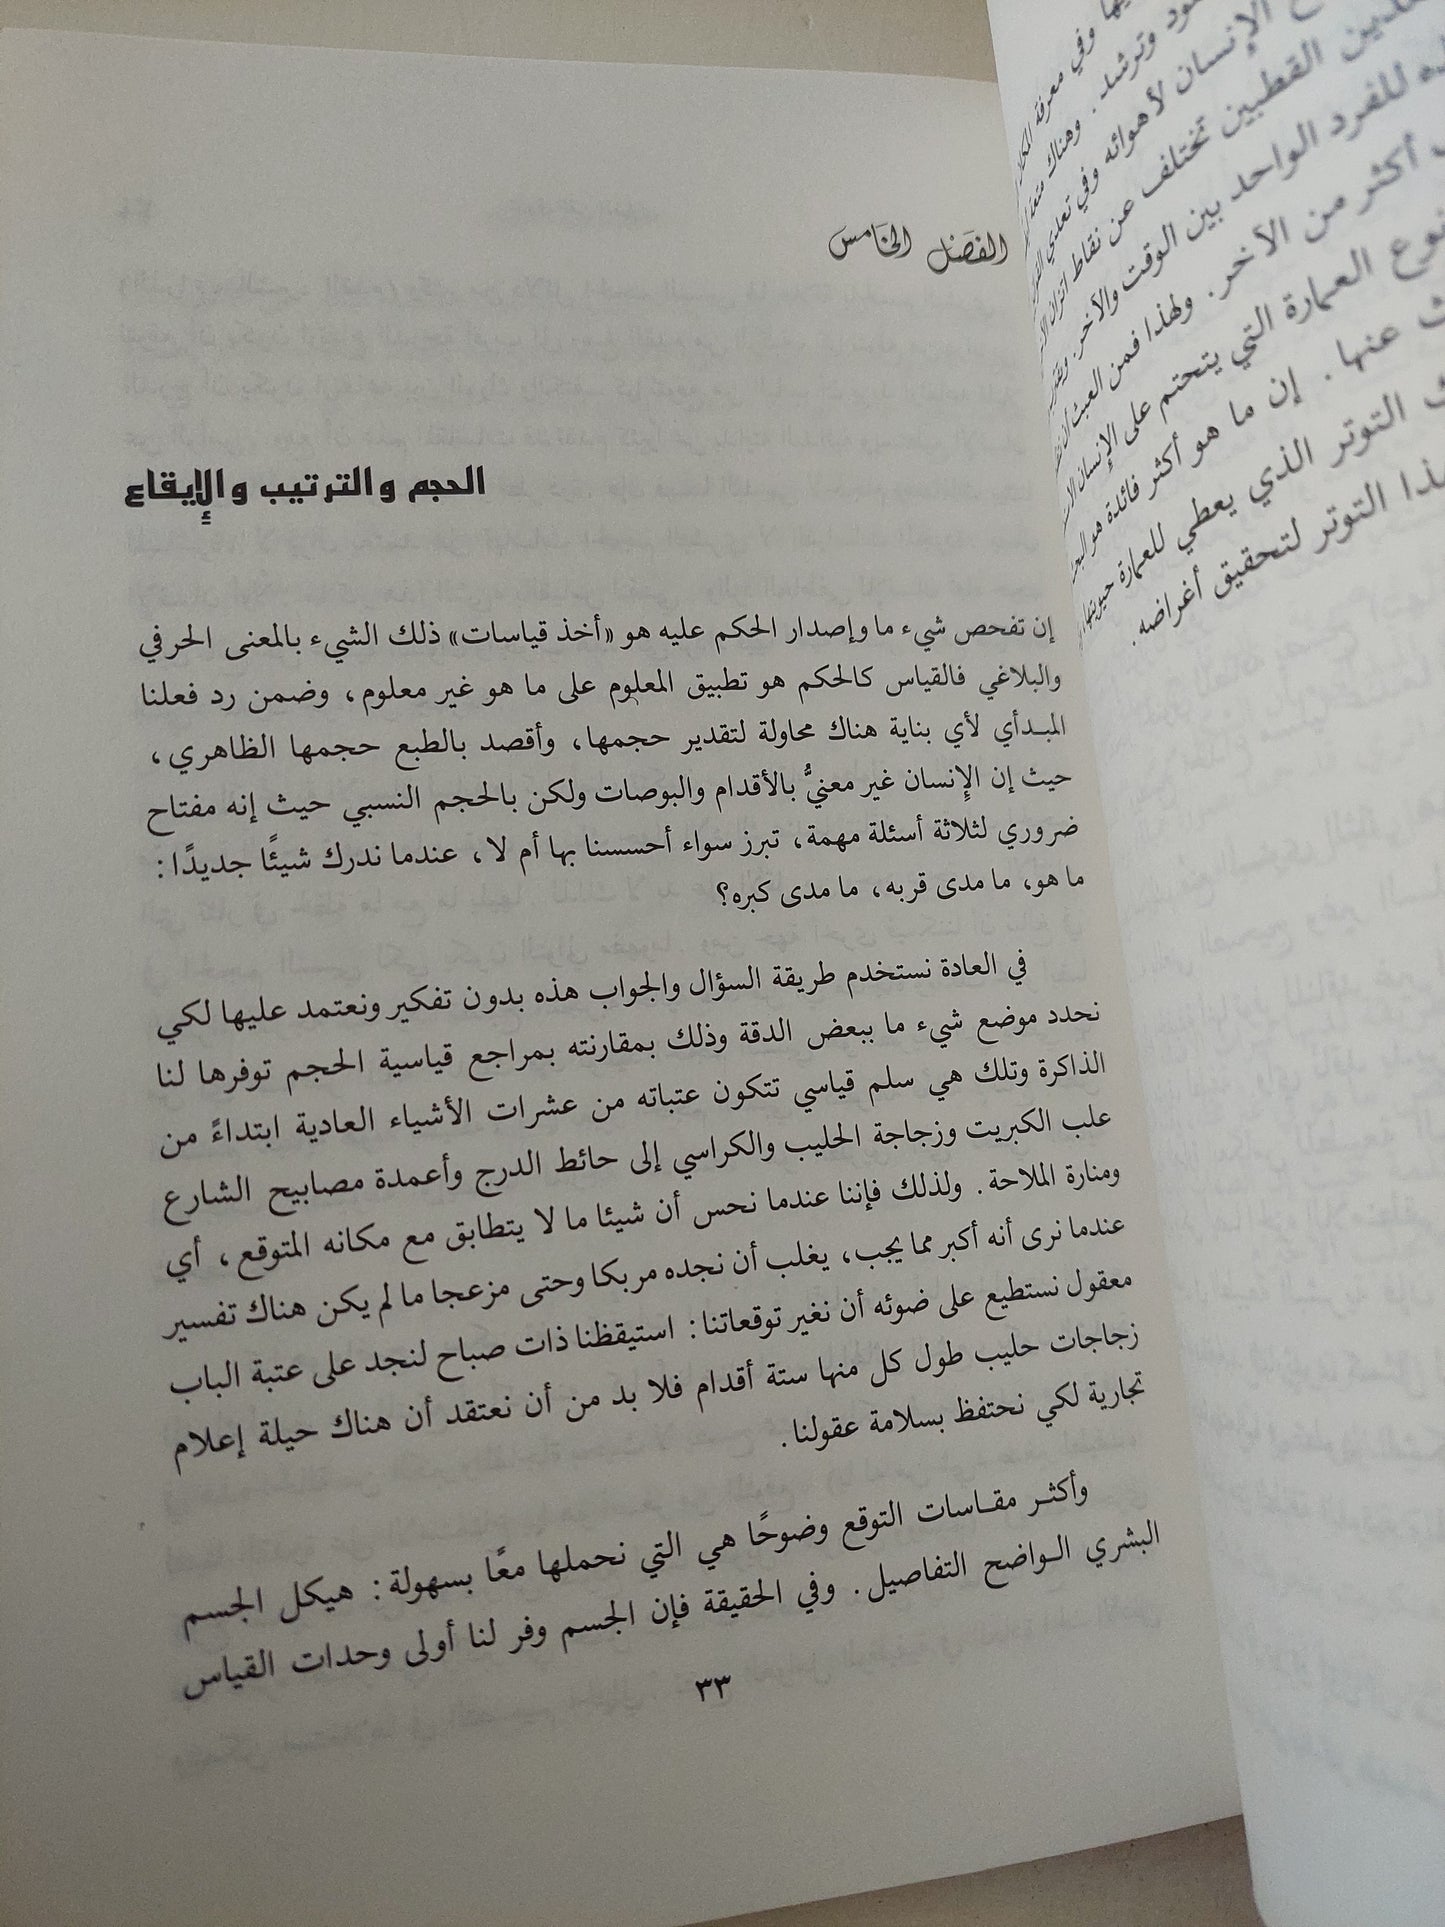 الفصل الخامس
الحجم والترتيب والإيقاع
إن تفحص شيء ما وإصدار الحكم عليه هو «أخذ قياسات» ذلك الشيء بالمعنى الحرفي
والبلاغي فالقياس كالحكم هو تطبيق المعلوم على ما هو غير معلوم، وضمن رد فعلنا
المبدأي لأي بناية هناك محاولة لتقدير حجمها، وأقصد بالطبع حجمها الظاهري،
حيث إن الإنسان غير معنيُّ بالأقدام والبوصات ولكن بالحجم النسبي حيث إنه مفتاح
ضروري لثلاثة أسئلة مهمة، تبرز سواء أحسسنا بها أم لا، عندما ندرك شيئًا جديدًا:
ما هو، ما مدى قربه، ما مدى كبره؟
في العادة نستخدم طريقة السؤال والجواب هذه بدون تفكير ونعتمد عليها لكي
نحدد موضع شيء ما ببعض الدقة وذلك بمقارنته بمراجع قياسية الحجم توفرها لنا
الذاكرة وتلك هي سلم قياسي تتكون عتباته من عشرات الأشياء العادية ابتداءً من
علب الكبريت وزجاجة الحليب والكراسي إلى حائط الدرج وأعمدة مصابيح الشارع
ومنارة الملاحة. ولذلك فإننا عندما نحس أن شيئا ما لا يتطابق مع مكانه المتوقع، أي
عندما نرى أنه أكبر مما يجب، يغلب أن نجده مربكا وحتى مزعجا ما لم يكن هناك تفسير
معقول نستطيع على ضوئه أن نغير توقعاتنا: استيقظنا ذات صباح لنجد على عتبة الباب
زجاجات حليب طول كل منها ستة أقدام فلا بد من أن نعتقد أن هناك حيلة إعلام
تجارية لكي نحتفظ بسلامة عقولنا.
وأكثر مقاسات التوقع وضوحًا هي التي نحملها معًا بسهولة: هيكل الجسم
البشري الواضح التفاصيل. وفي الحقيقة فإن الجسم وفر لنا أولى وحدات القياس
٣٣
وفي معرفة
وترشد. وهناك
الإنسان لأهوائه وفي تعدي
القطبين تختلف عن نقاط اتزان
للفرد الواحد بين الوقت والآخر.
أكثر من الآخر. ولهذا فمن العبث أن
العمارة التي يتحتم على الإنسان
عنها. إن ما هو أكثر فائدة هو
التوتر الذي يعطي للعمارة حيويتها
التوتر لتحقيق أغراضه.